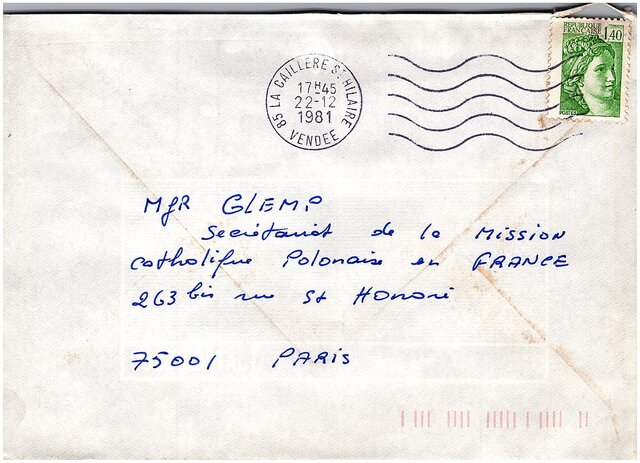 REPUBLIQUE
FRANCAISE
1,40
POSTES
85 LA CAILLERE ST HILAIRE
17H45
22-12
1981
VENDEE
MgR GLEMP
Secrétariat de la MISSION
catholique Polonaise en FRANCE
263 bis rue St Honoré
75001 PARIS